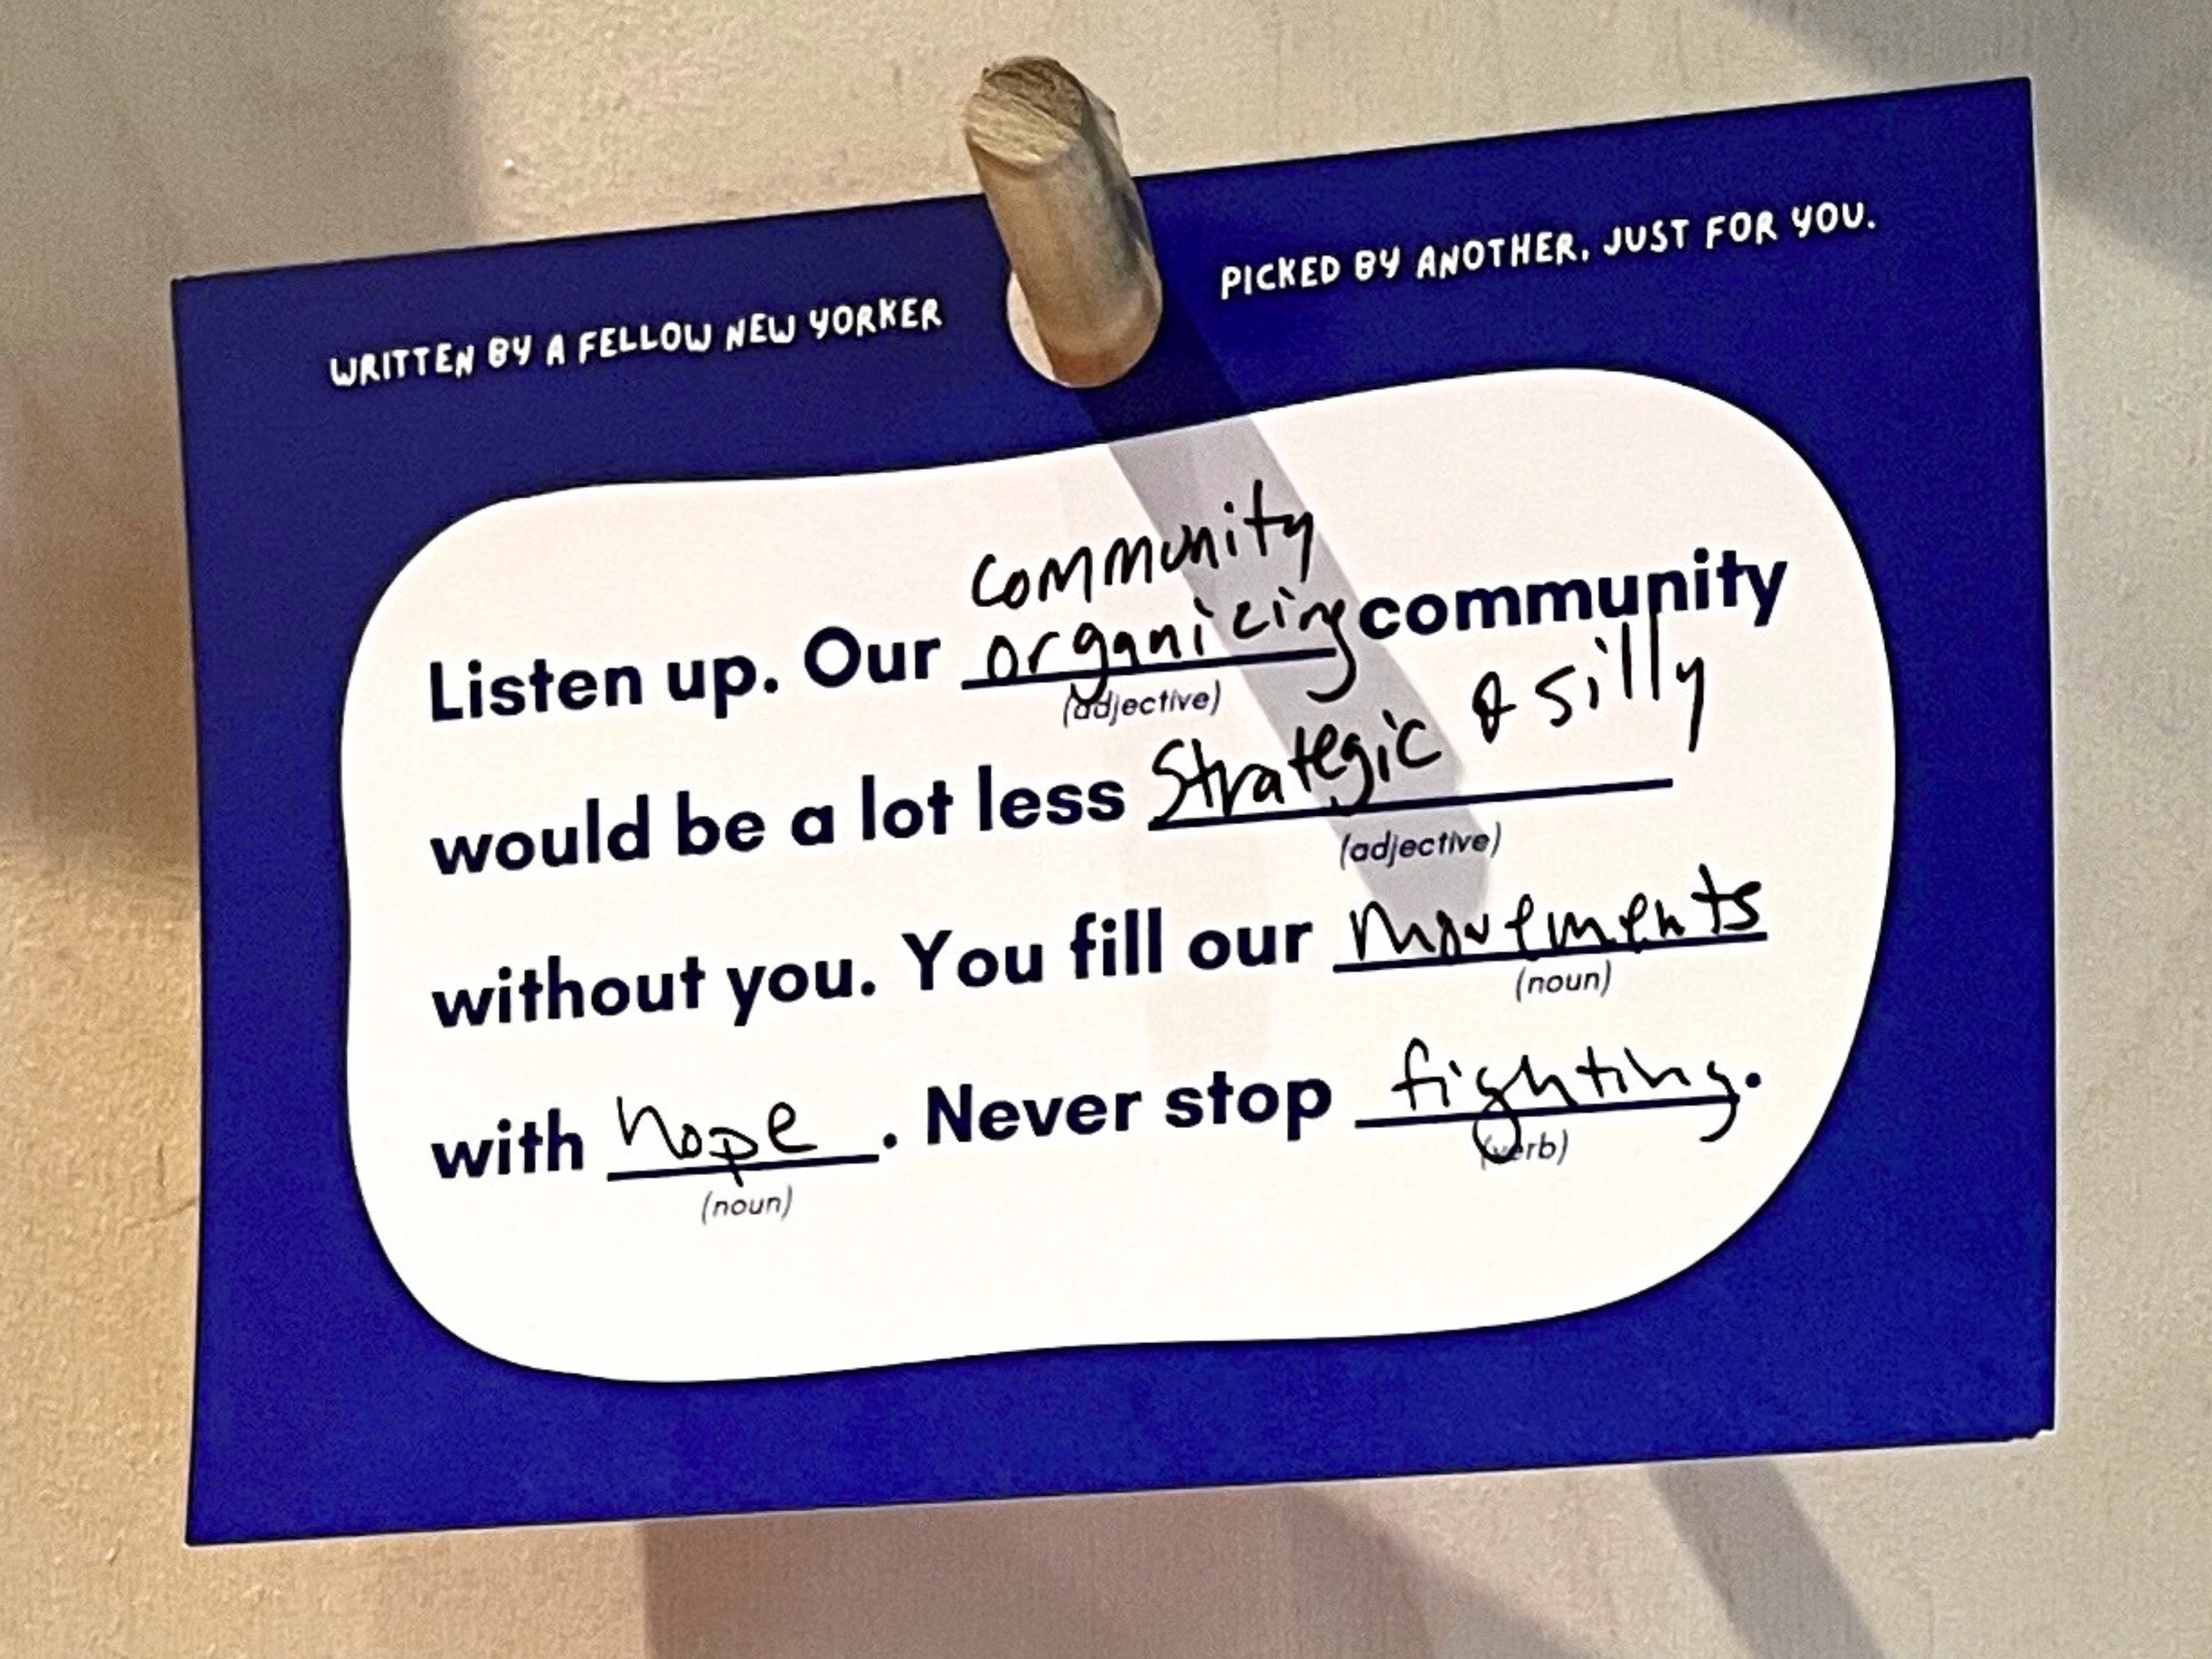 WRITTEN BY A FELLOW NEW YORKER
PICKED BY ANOTHER, JUST FOR YOU.
community
Listen up. Our organizing community
(adjective)
would be a lot less Strategic & silly
(adjective)
without you. You fill our movements
(noun)
with hope. Never stop fighting.
(noun) (verb)